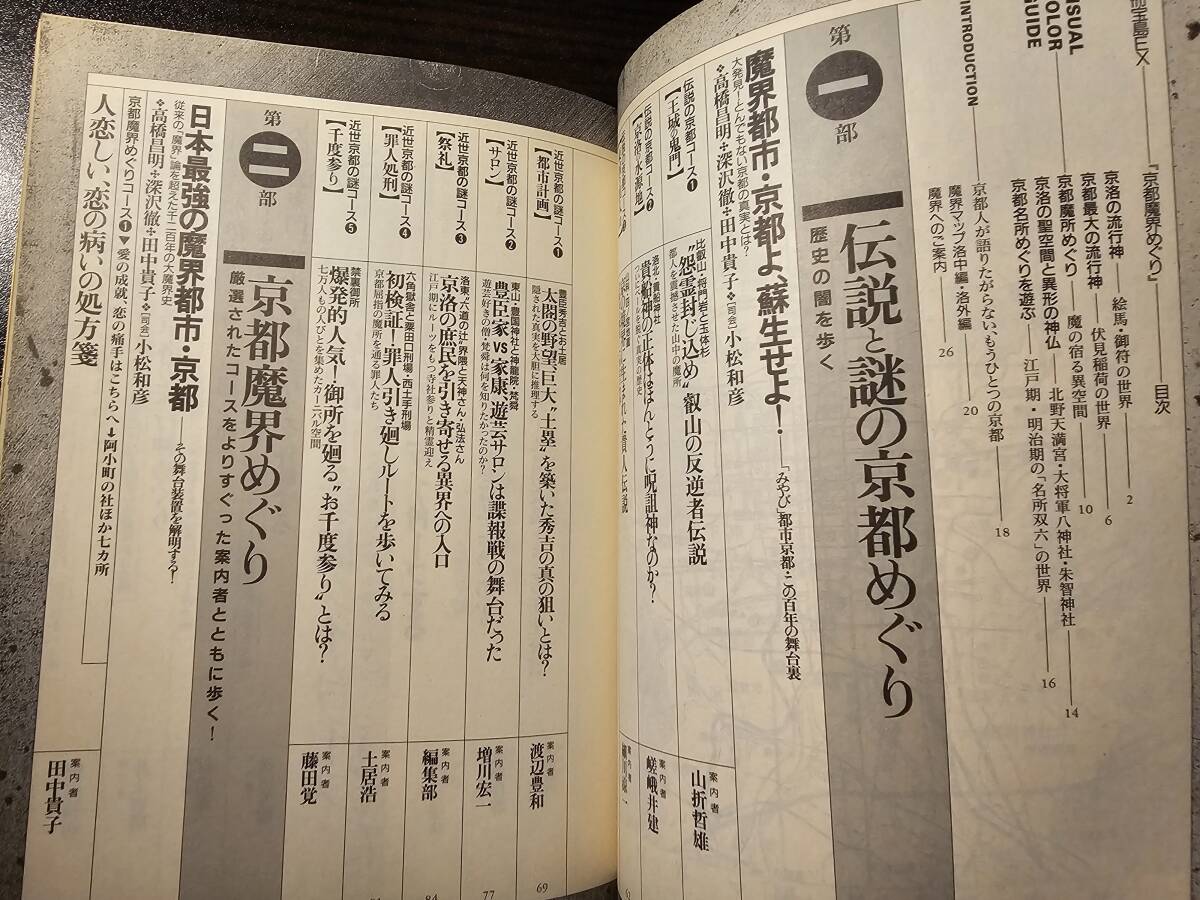 『京都魔界めぐり』
目次
VISUAL
COLOR
GUIDE
京洛の流行神――絵馬・御符の世界――2
京都最大の流行神――伏見稲荷の世界――6
京都魔所めぐり――魔の宿る異空間――10
京洛の聖空間と異形の神仏――北野天満宮・大将軍八神社・朱智神社――14
京都名所めぐりを遊ぶ――江戸期・明治期の「名所双六」の世界――16
INTRODUCTION
京都人が語りたがらない、もうひとつの京都――18
魔界マップ洛中編・洛外編――20
魔界へのご案内――26
第一部
伝説と謎の京都めぐり
歴史の闇を歩く
魔界都市・京都よ、蘇生せよ!――「みやび」都市京都・この百年の舞台裏
大発見―とんでもない京都の真実とは?
❖高橋昌明❖深沢徹❖田中貴子❖[司会]小松和彦
伝説の京都コース❶
【王城の鬼門】
比叡山・将門岩と玉体杉
“怨霊封じ込め”叡山の反逆者伝説
都人を震撼させた山中の魔所
案内者
山折哲雄
伝説の京都コース❷
【京洛の水源地】
洛北・貴船神社
貴船神の正体はほんとうに呪詛神なのか?
ついにベールを脱ぐ真実の歴史
案内者
嵯峨井建
近世京都の謎コース❶
【都市計画】
豊臣秀吉とお土居
太閤の野望、巨大“土塁”を築いた秀吉の真の狙いとは?
隠された真実を大胆に推理する
案内者
渡辺豊和
69
近世京都の謎コース❷
【サロン】
東山・豊国神社と神龍院・梵舜
豊臣家vs家康、遊芸サロンは諜報戦の舞台だった
遊芸好きの僧・梵舜は何を知りたかったのか?
案内者
増川宏一
77
近世京都の謎コース❸
【祭礼】
洛東“六道の辻”界隈と天神さん・弘法さん
京洛の庶民を引き寄せる異界への入口
江戸期にルーツをもつ寺社参りと精霊迎え
案内者
編集部
84
近世京都の謎コース❹
【罪人処刑】
六角獄舎と粟田口刑場・西土手刑場
初検証!罪人引き廻しルートを歩いてみる
京都屈指の魔所を通る罪人たち
案内者
土居浩
近世京都の謎コース❺
【千度参り】
禁裏御所
爆発的人気!御所を廻る“お千度参り”とは?
七万人もの人びとを集めたカーニバル空間
案内者
藤田覚
第二部
京都魔界めぐり
厳選されたコースをよりすぐった案内者とともに歩く!
日本最強の魔界都市・京都――その舞台装置を解明する!
従来の「魔界」論を超えた千二百年の大魔界史
❖高橋昌明❖深沢徹❖田中貴子❖[司会]小松和彦
京都魔界めぐりコース❶▼愛の成就、恋の痛手はこちらへ➡阿小町の社ほか七カ所
人恋しい、恋の病いの処方箋
案内者
田中貴子